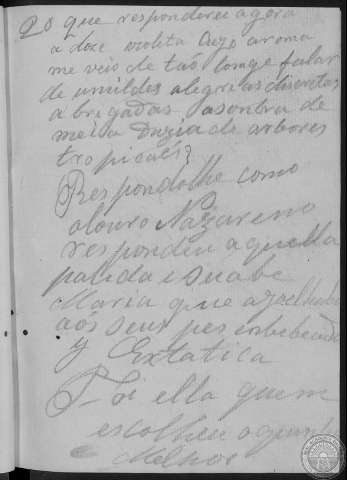 O que responderei agora
a doce violeta cujo aroma
me veio de tao longe falar
de umildes alegrias discretas
abrigadas, asombra de
meia Duzia de arbores
tropicaes?
Respondolhe como
olouro Nazareno
respondeu aquella
palida e suabe
Maria que ajoelhada
aós seus pes enbebecida
y Extatica
Foi ella quem
escolheu o quinhão
Melhor